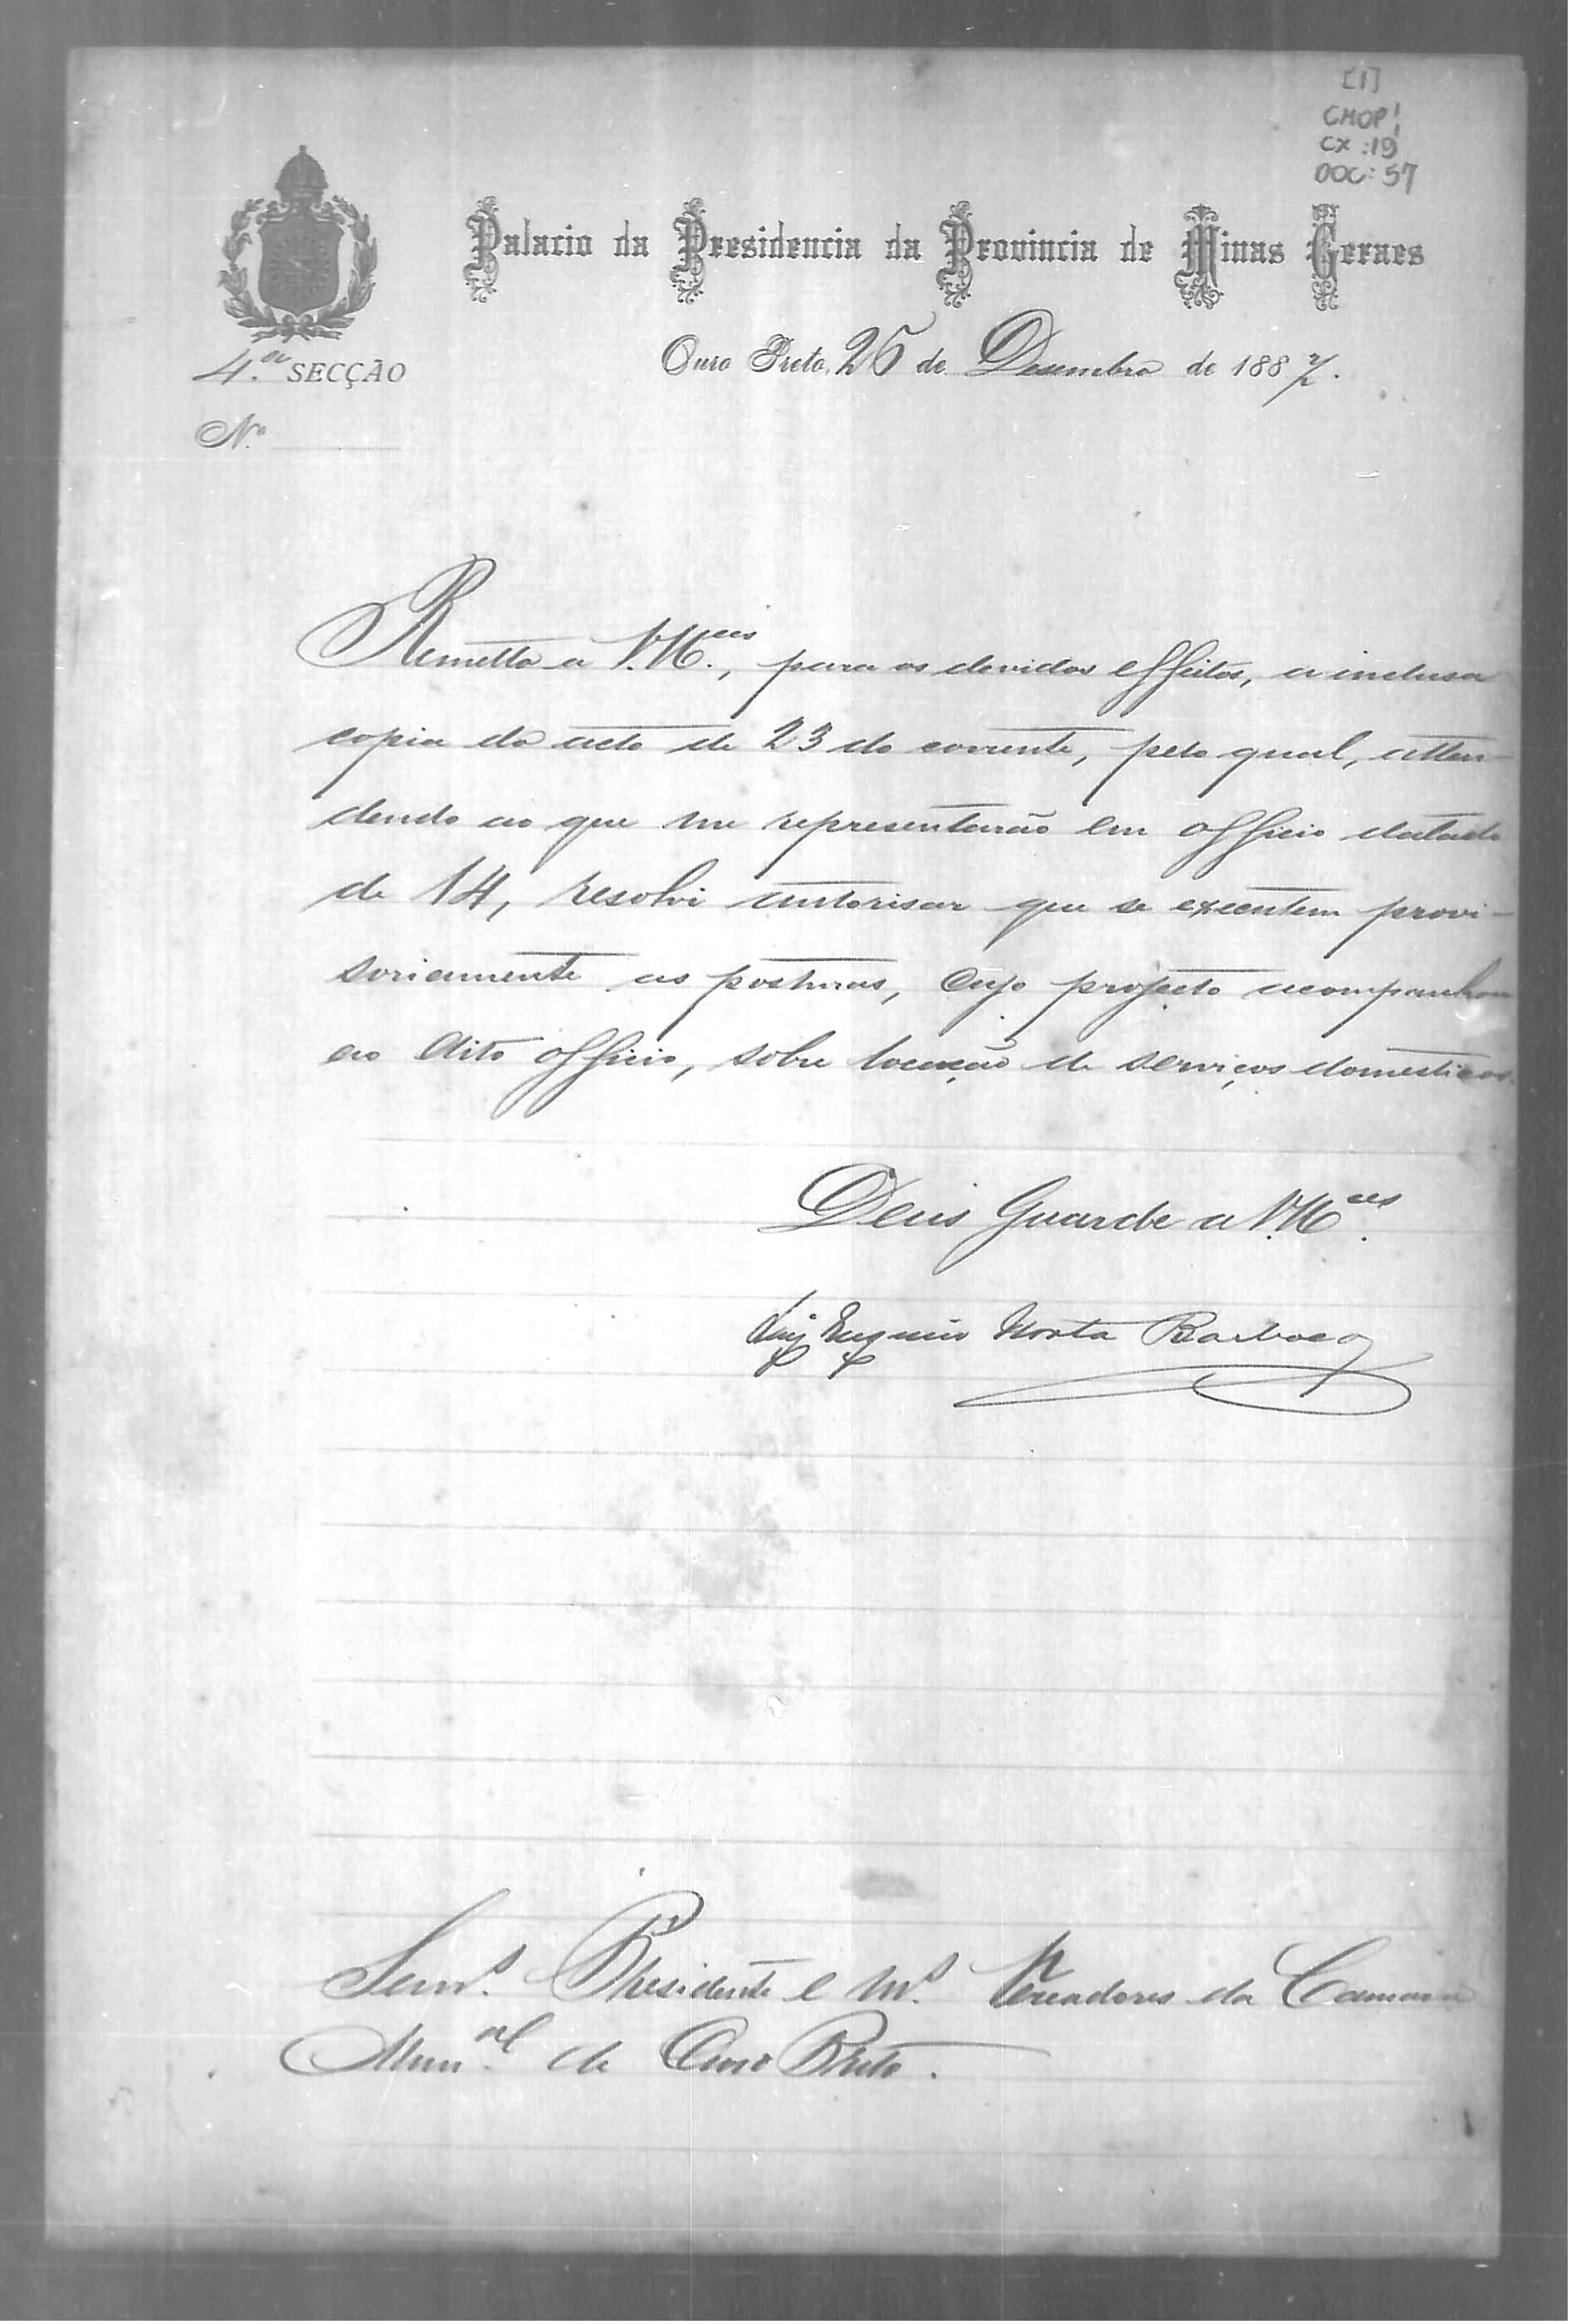 [1]
CMOP
CX: 19
DOC: 57
Palacio da Presidencia da Provincia de Minas Geraes
4.ª SECÇÃO
Ouro Preto, 26 de Desembro de 1887.
N.º
Remetto a V. M.ces, para os devidos effeitos, a inclusa
copia do acto de 23 do corrente, pelo qual, atten-
dendo ao que me representarão em officio datado
de 14, resolvi autorisar que se executem provi-
soriamente as posturas, cujo projecto acompanhou
ao dito officio, sobre locação de serviços domesticos.
Deus Guarde a V. M.ces
Luiz Eugenio Horta Barbosa
Senr.s Presidente e M.s Vereadores da Camara
Mun.al de Ouro Preto.